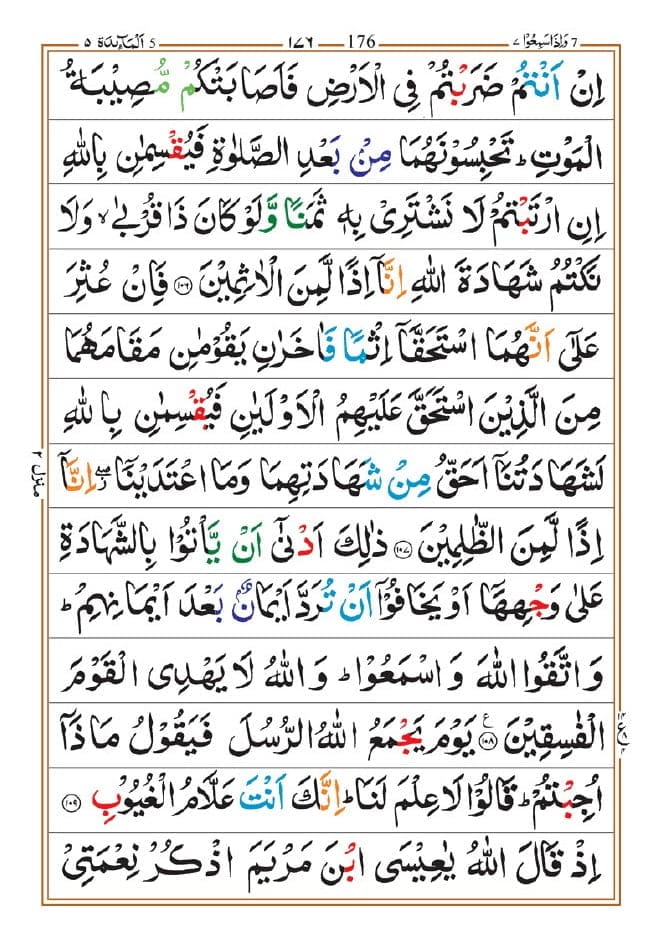 وَاِذَا سَمِعُوْا ٧ 7 176 ١٧٦ 5 اَلْمَآئِدَة ٥
اِنْ اَنْتُمْ ضَرَبْتُمْ فِى الْاَرْضِ فَاَصَابَتْكُمْ مُّصِيْبَةُ
الْمَوْتِ ؕ تَحْبِسُوْنَهُمَا مِنْۢ بَعْدِ الصَّلٰوةِ فَيُقْسِمٰنِ بِاللّٰهِ
اِنِ ارْتَبْتُمْ لَا نَشْتَرِىْ بِهٖ ثَمَنًا وَّلَوْ كَانَ ذَا قُرْبٰى ۙ وَلَا
نَكْتُمُ شَهَادَةَ اللّٰهِ اِنَّاۤ اِذًا لَّمِنَ الْاٰثِمِيْنَ ۝١٠٦ فَاِنْ عُثِرَ
عَلٰٓى اَنَّهُمَا اسْتَحَقَّاۤ اِثْمًا فَاٰخَرٰنِ يَقُوْمٰنِ مَقَامَهُمَا
مِنَ الَّذِيْنَ اسْتَحَقَّ عَلَيْهِمُ الْاَوْلَيٰنِ فَيُقْسِمٰنِ بِاللّٰهِ
لَشَهَادَتُنَاۤ اَحَقُّ مِنْ شَهَادَتِهِمَا وَمَا اعْتَدَيْنَاۤ ۖ ز اِنَّاۤ
اِذًا لَّمِنَ الظّٰلِمِيْنَ ۝١٠٧ ذٰلِكَ اَدْنٰٓى اَنْ يَّاْتُوْا بِالشَّهَادَةِ
عَلٰى وَجْهِهَاۤ اَوْ يَخَافُوْۤا اَنْ تُرَدَّ اَيْمَانٌۢ بَعْدَ اَيْمَانِهِمْ ؕ
وَاتَّقُوا اللّٰهَ وَاسْمَعُوْا ؕ وَاللّٰهُ لَا يَهْدِى الْقَوْمَ
الْفٰسِقِيْنَ ۝١٠٨ ع يَوْمَ يَجْمَعُ اللّٰهُ الرُّسُلَ فَيَقُوْلُ مَاذَاۤ
اُجِبْتُمْ ؕ قَالُوْا لَا عِلْمَ لَنَا ؕ اِنَّكَ اَنْتَ عَلَّامُ الْغُيُوْبِ ۝١٠٩
اِذْ قَالَ اللّٰهُ يٰعِيْسَى ابْنَ مَرْيَمَ اذْكُرْ نِعْمَتِىْ
منزل ٢